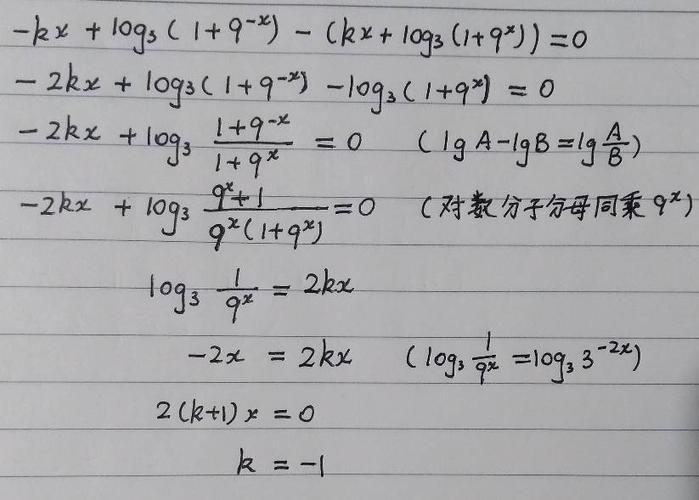 -kx + log₃(1+9⁻ˣ) - (kx + log₃(1+9ˣ)) = 0
-2kx + log₃(1+9⁻ˣ) - log₃(1+9ˣ) = 0
-2kx + log₃ (1+9⁻ˣ)/(1+9ˣ) = 0 (lgA-lgB=lg A/B)
-2kx + log₃ (9ˣ+1)/(9ˣ(1+9ˣ)) = 0 (对数分子分母同乘9ˣ)
log₃ 1/9ˣ = 2kx
-2x = 2kx (log₃ 1/9ˣ = log₃ 3⁻²ˣ)
2(k+1)x = 0
k = -1